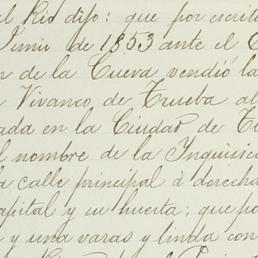 el Rio dijo: que por escrit
Junio de 1853 ante el
n de la Cueva vendió la
Vivanco, de Trueba al
ada en la Ciudad de
l nombre de la Inquisic
a calle principal á derecha
apital y su huerta; que po
y una varas y linda con